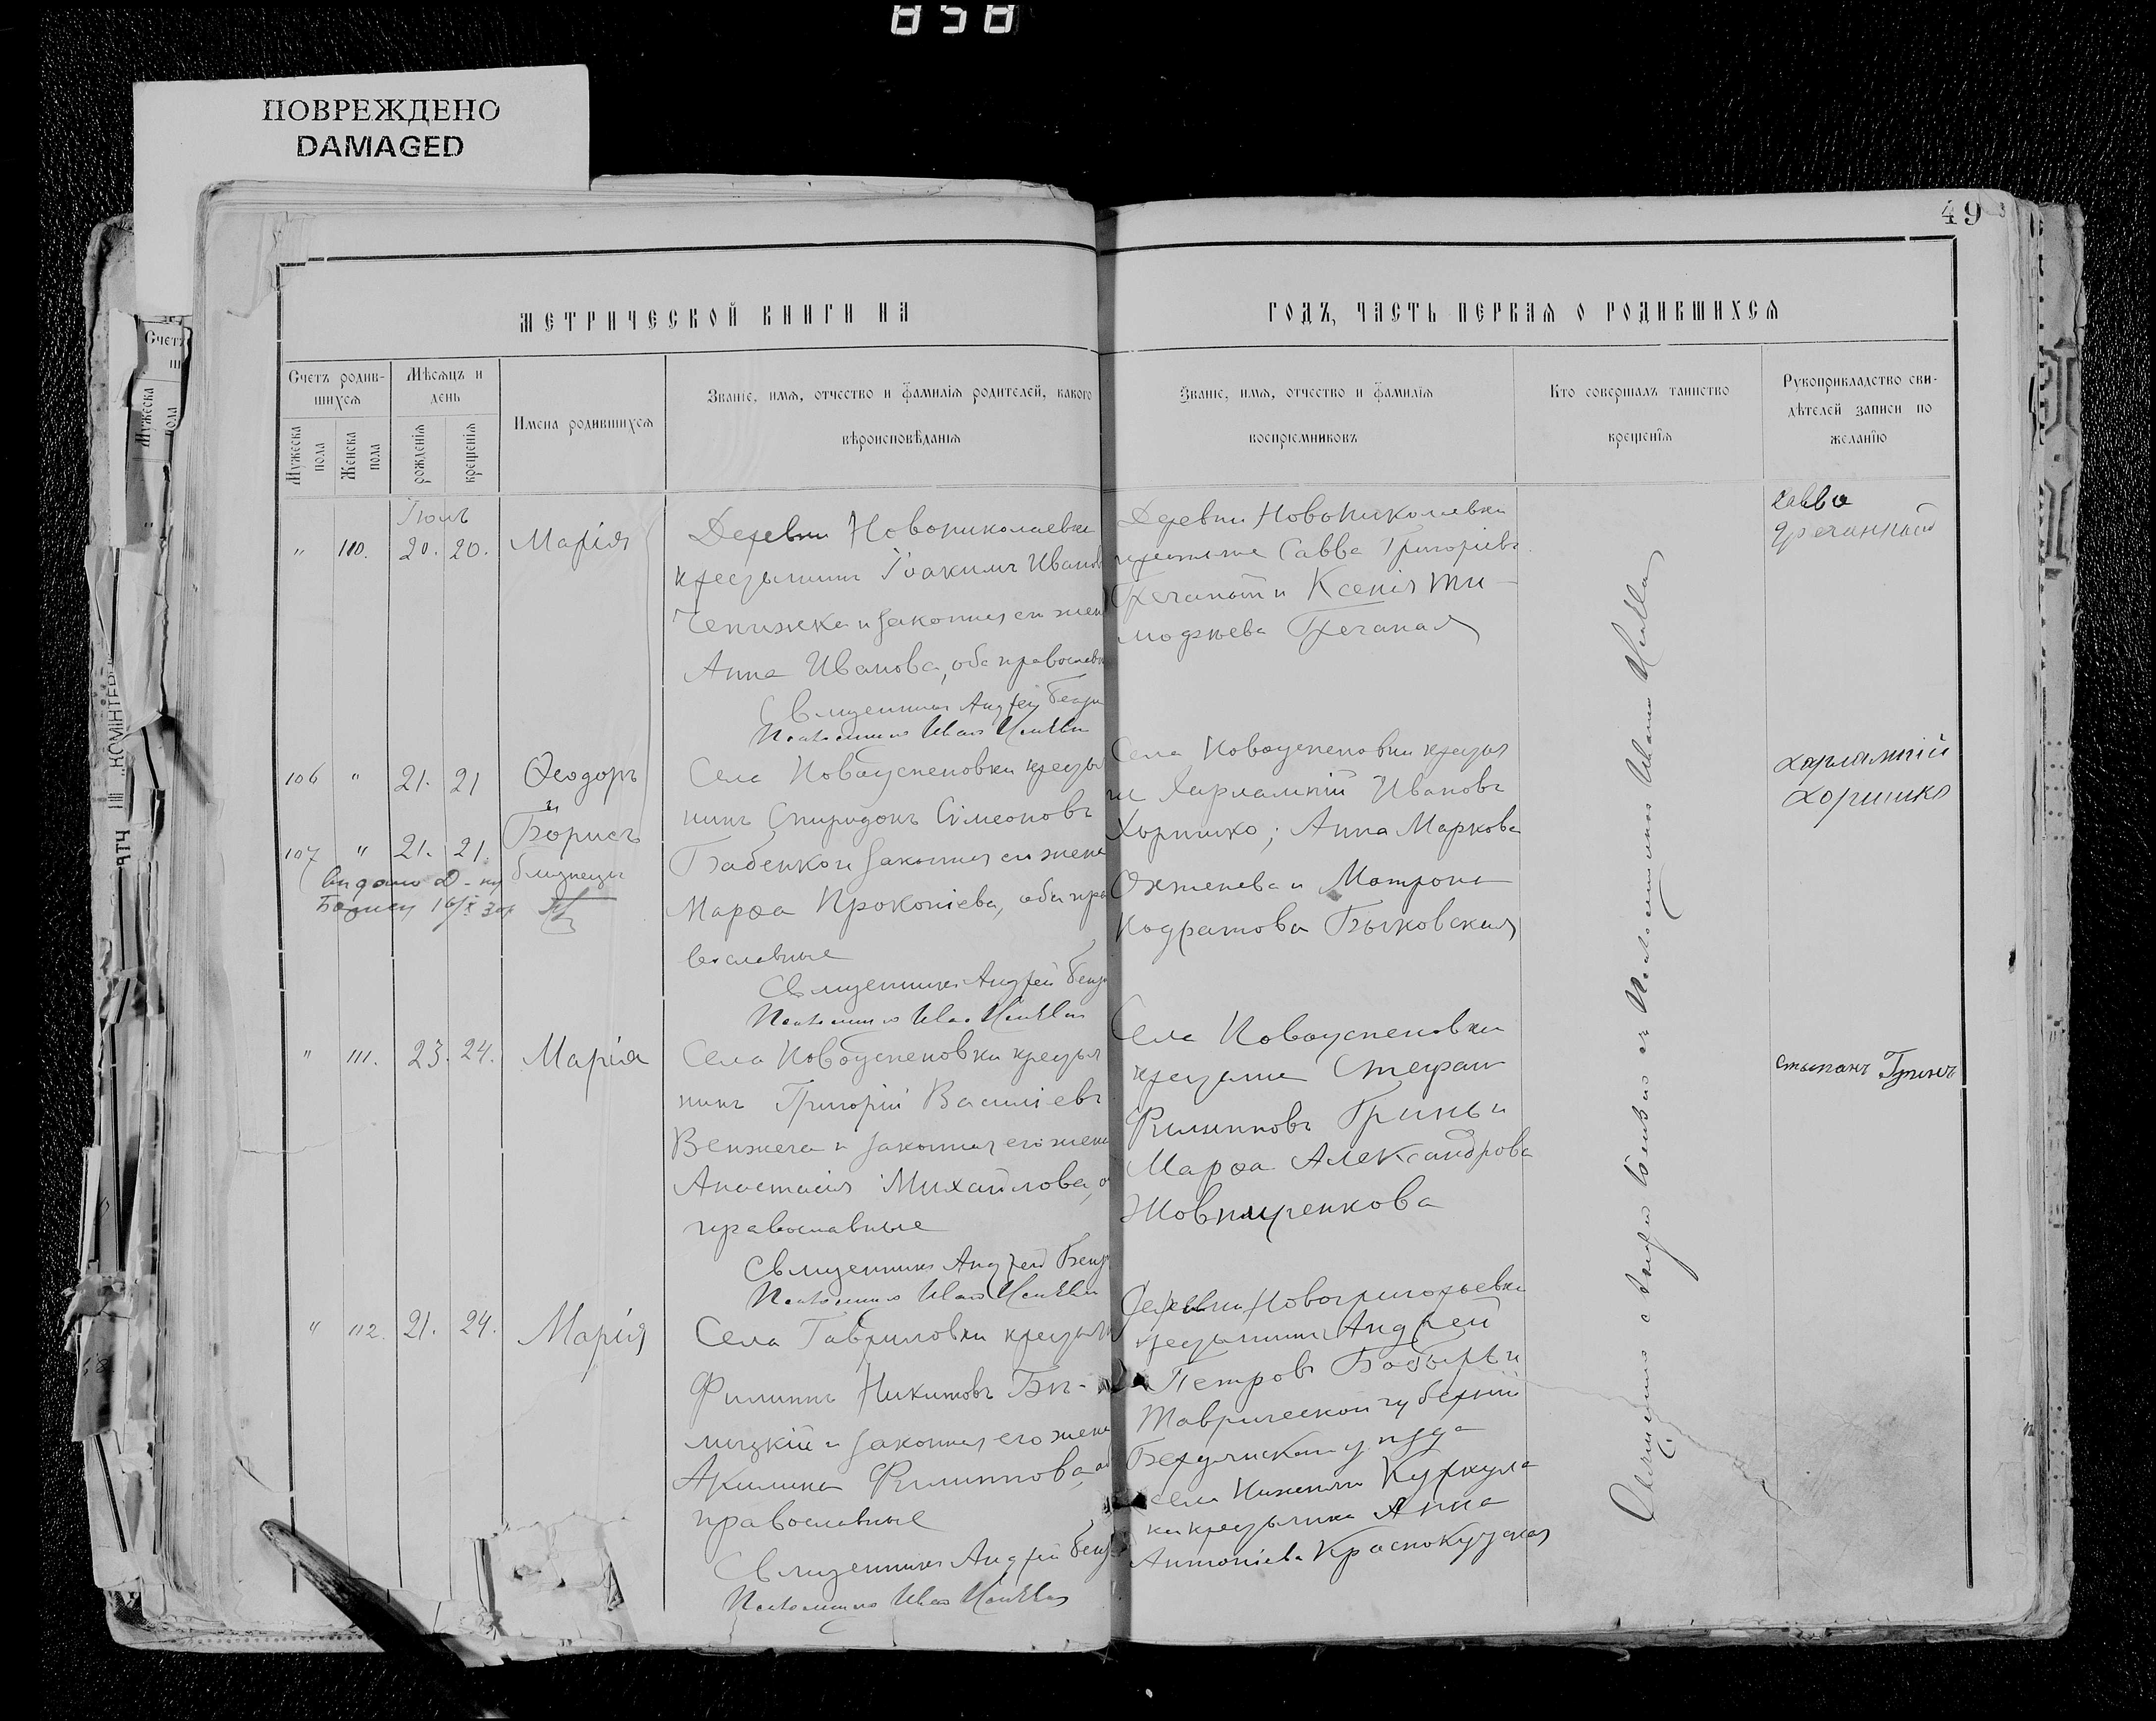 858
ПОВРЕЖДЕНО
DAMAGED
49
МЕТРИЧЕСКОЙ КНИГИ НА
ГОДЪ, ЧАСТЬ ПЕРВАЯ О РОДИВШИХСЯ
Счетъ родив-
шихся
Мужеска пола
Женска пола
Мѣсяцъ и
день
рожденія
крещенія
Имена родившихся
Званіе, имя, отчество и фамилія родителей, какого
вѣроисповѣданія
Званіе, имя, отчество и фамилія
воспріемниковъ
Кто совершалъ таинство
крещенія
Рукоприкладство сви-
дѣтелей записи по
желанію
" 110. 20. 20. Марія
Деревни Новониколаевки
крестьянинъ Іоакимъ Иванов
Чепижка и законная его жен
Анна Иванова, оба православн
Священникъ Андрей
Псаломщикъ Иванъ
Деревни Новониколаевки
крестьяне Савва Григорьевъ
Гречаный и Ксенія Ти-
мофѣева Гречаная
Савва
Гречанный
106 " 21. 21 Ѳеодоръ
и
107 " 21. 21. Борисъ
близнецы
Села Новоуспеновки кресть
нинъ Спиридонъ Симеоновъ
Бабенко и законная его жена
Марѳа Прокопіева, оба пра
вославные
Священникъ Андрей
Псаломщикъ Иванъ
Села Новоуспеновки кресть
не Харлампій Ивановъ
Хоришко; Анна Маркова
и Матрона
Кодратова Быковская
Харлампій
Хоришко
" 111. 23. 24. Марія
Села Новоуспеновки кресть
нинъ Григорій Василіевъ
Венжега и законная его жена
Анастасія Михайлова, о
православные
Священникъ Андрей
Псаломщикъ Иванъ
Села Новоуспеновки
крестьяне Стефанъ
Филипповъ Гринь и
Марѳа Александрова
Шовкуренкова
Стыпанъ Гринь
" 112. 21. 24. Марія
Села Гавриловки крестьян
Филиппъ Никитовъ Би-
лицкій и законная его жена
Акилина Филиппова, об
православные
Священникъ Андрей
Псаломщикъ Иванъ
Деревни Новогригорьевки
крестьянинъ Андрей
Петровъ и
Таврической губерніи
Бердянскаго уѣзда
села
ки крестьянка Анна
Антоніева Краснокутская